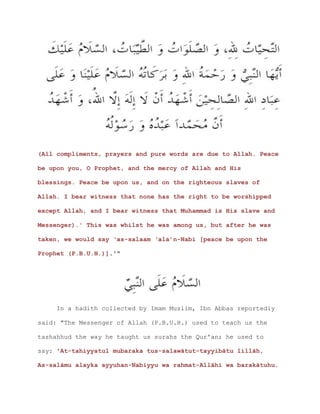 التَّحِيَّاتُ لِلَّهِ، وَ الصَّلَوَاتُ وَ الطَّيِّبَاتُ، السَّلَامُ عَلَيْكَ
أَيُّهَا النَّبِيُّ وَ رَحْمَةُ اللهِ وَ بَرَكَاتُهُ السَّلَامُ عَلَيْنَا وَ عَلَى
عِبَادِ اللهِ الصَّالِحِيْنَ أَشْهَدُ أَنْ لَا إِلَهَ إِلَّا اللهُ، وَ أَشْهَدُ
أَنَّ مُحَمَّداً عَبْدُهُ وَ رَسُوْلُهُ
(All compliments, prayers and pure words are due to Allah. Peace
be upon you, O Prophet, and the mercy of Allah and His
blessings. Peace be upon us, and on the righteous slaves of
Allah. I bear witness that none has the right to be worshipped
except Allah, and I bear witness that Muhammad is His slave and
Messenger).' This was whilst he was among us, but after he was
taken, we would say 'as-salaam 'ala'n-Nabi [peace be upon the
Prophet (P.B.U.H.)].'"
السَّلَامُ عَلَى النَّبِيِّ
In a hadith collected by Imam Muslim, Ibn Abbas reportedly
said: "The Messenger of Allah (P.B.U.H.) used to teach us the
tashahhud the way he taught us surahs the Qur'an; he used to
say: 'At-tahiyyatul mubaraka tus-salawātut-tayyibātu lillāh,
As-salāmu alayka ayyuhan-Nabiyyu wa rahmat-Allāhi wa barakātuhu.